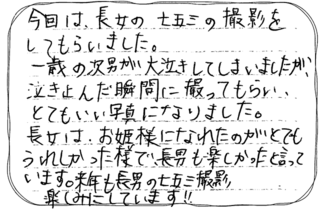 今回は、長女の七五三の撮影を
してもらいました。
一歳の次男が大泣きしてしまいましたが、
泣きよんだ瞬間に撮ってもらい、
とてもいい写真になりました。
長女は、お姫様になれたのがとても
うれしかった様で、長男も楽しかったと言って
います。来年も長男の七五三撮影
楽しみにしています!!